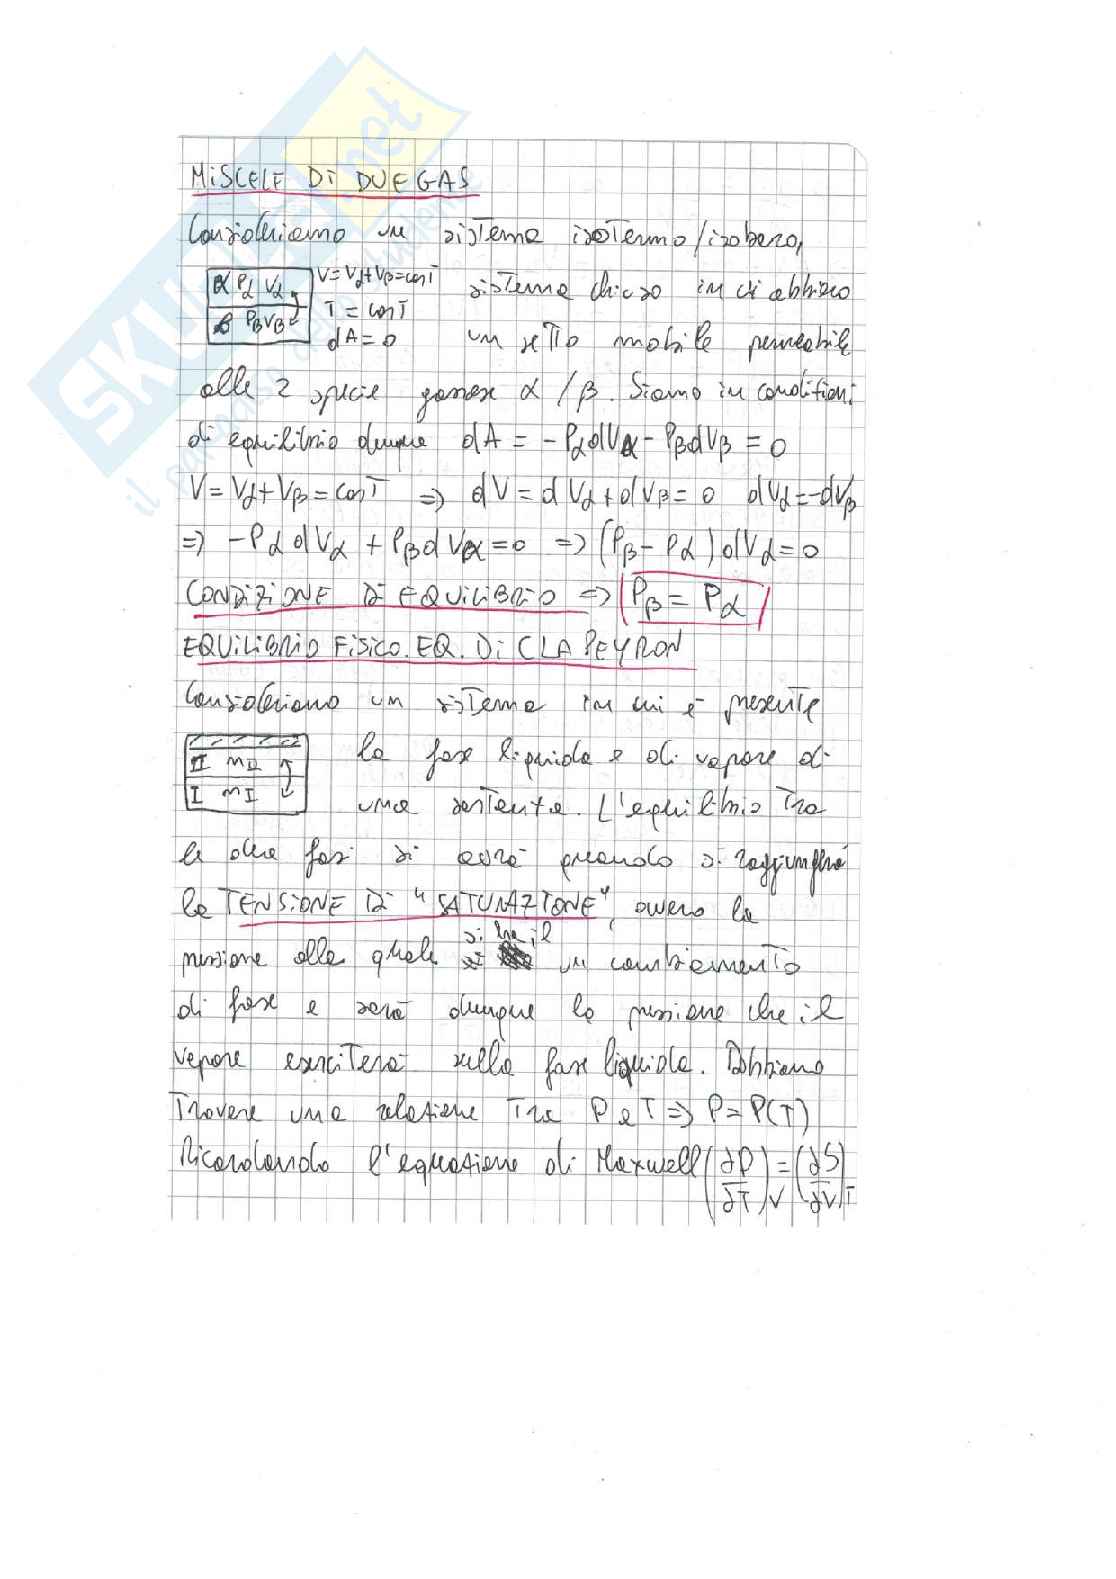 MISCELE DI DUE GAS
Consideriamo un sistema isotermo/isobaro,
α Pα Vα V=Vα+Vβ=cosT sistema chiuso in cui abbiamo
β PβVβ T = cosT
dA=0 un setto mobile permeabile
alle 2 specie gassose α / β. Siamo in condizioni
di equilibrio dunque dA = -PαdVα - PβdVβ = 0
V=Vα+Vβ=cosT => dV=dVα+dVβ=0 dVα=-dVβ
=> -PαdVα + PβdVα=0 => (Pβ-Pα)dVα=0
CONDIZIONE DI EQUILIBRIO => Pβ = Pα
EQUILIBRIO FISICO. EQ. DI CLAPEYRON
Consideriamo un sistema in cui è presente
II mII la fase liquida e di vapore di
I mI una sostanza. L'equilibrio tra
le due fasi si avrà quando si raggiungerà
la TENSIONE DI "SATURAZIONE", ovvero la
pressione alla quale si ha il un cambiamento
di fase e sarà dunque la pressione che il
vapore eserciterà sulla fase liquida. Dobbiamo
trovare una relazione tra P e T => P=P(T)
Ricordando l'equazione di Maxwell (∂P/∂T)V=(∂S/∂V)T
SKUOLA.net
il paradiso dello studente